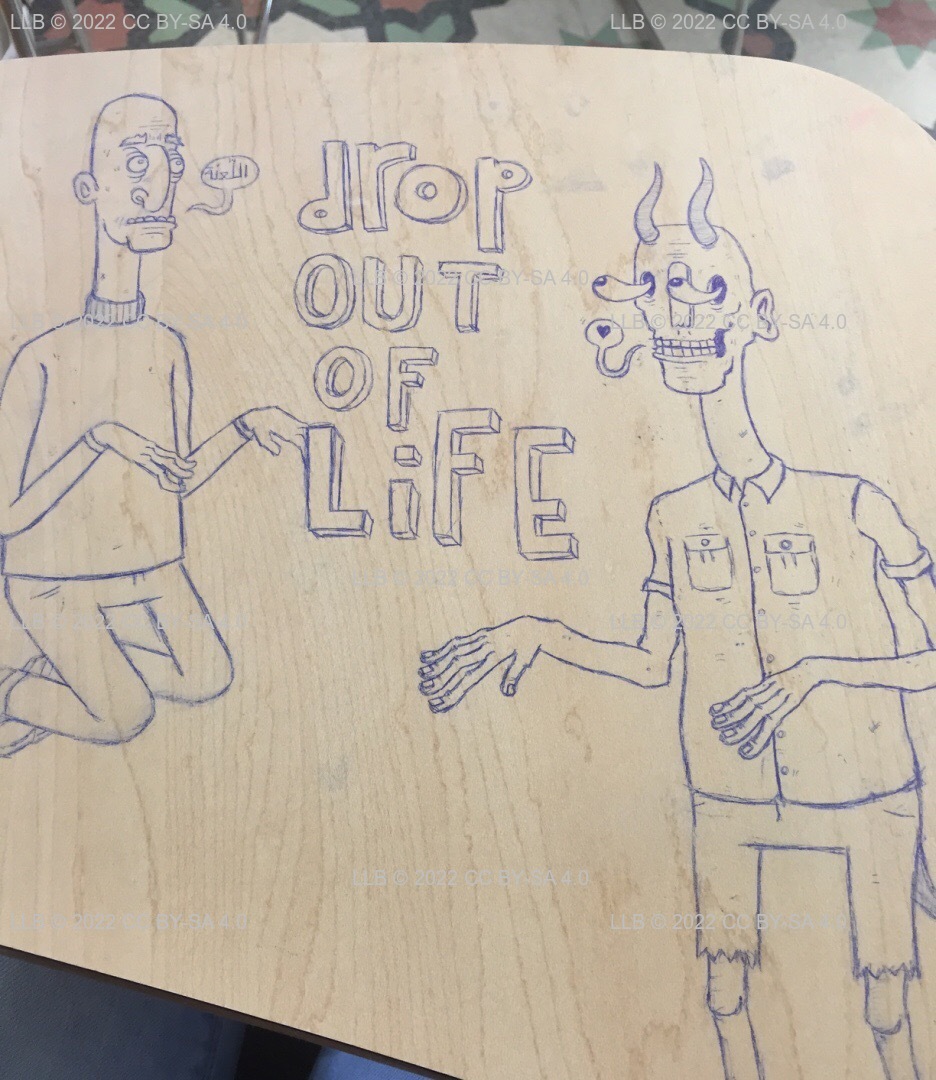 drop
OUT
OF
LiFE
LLB © 2022 CC BY-SA 4.0
LLB © 2022 CC BY-SA 4.0
LLB © 2022 CC BY-SA 4.0
LLB © 2022 CC BY-SA 4.0
LLB © 2022 CC BY-SA 4.0
LLB © 2022 CC BY-SA 4.0
LLB © 2022 CC BY-SA 4.0
LLB © 2022 CC BY-SA 4.0
LLB © 2022 CC BY-SA 4.0
LLB © 2022 CC BY-SA 4.0
LLB © 2022 CC BY-SA 4.0